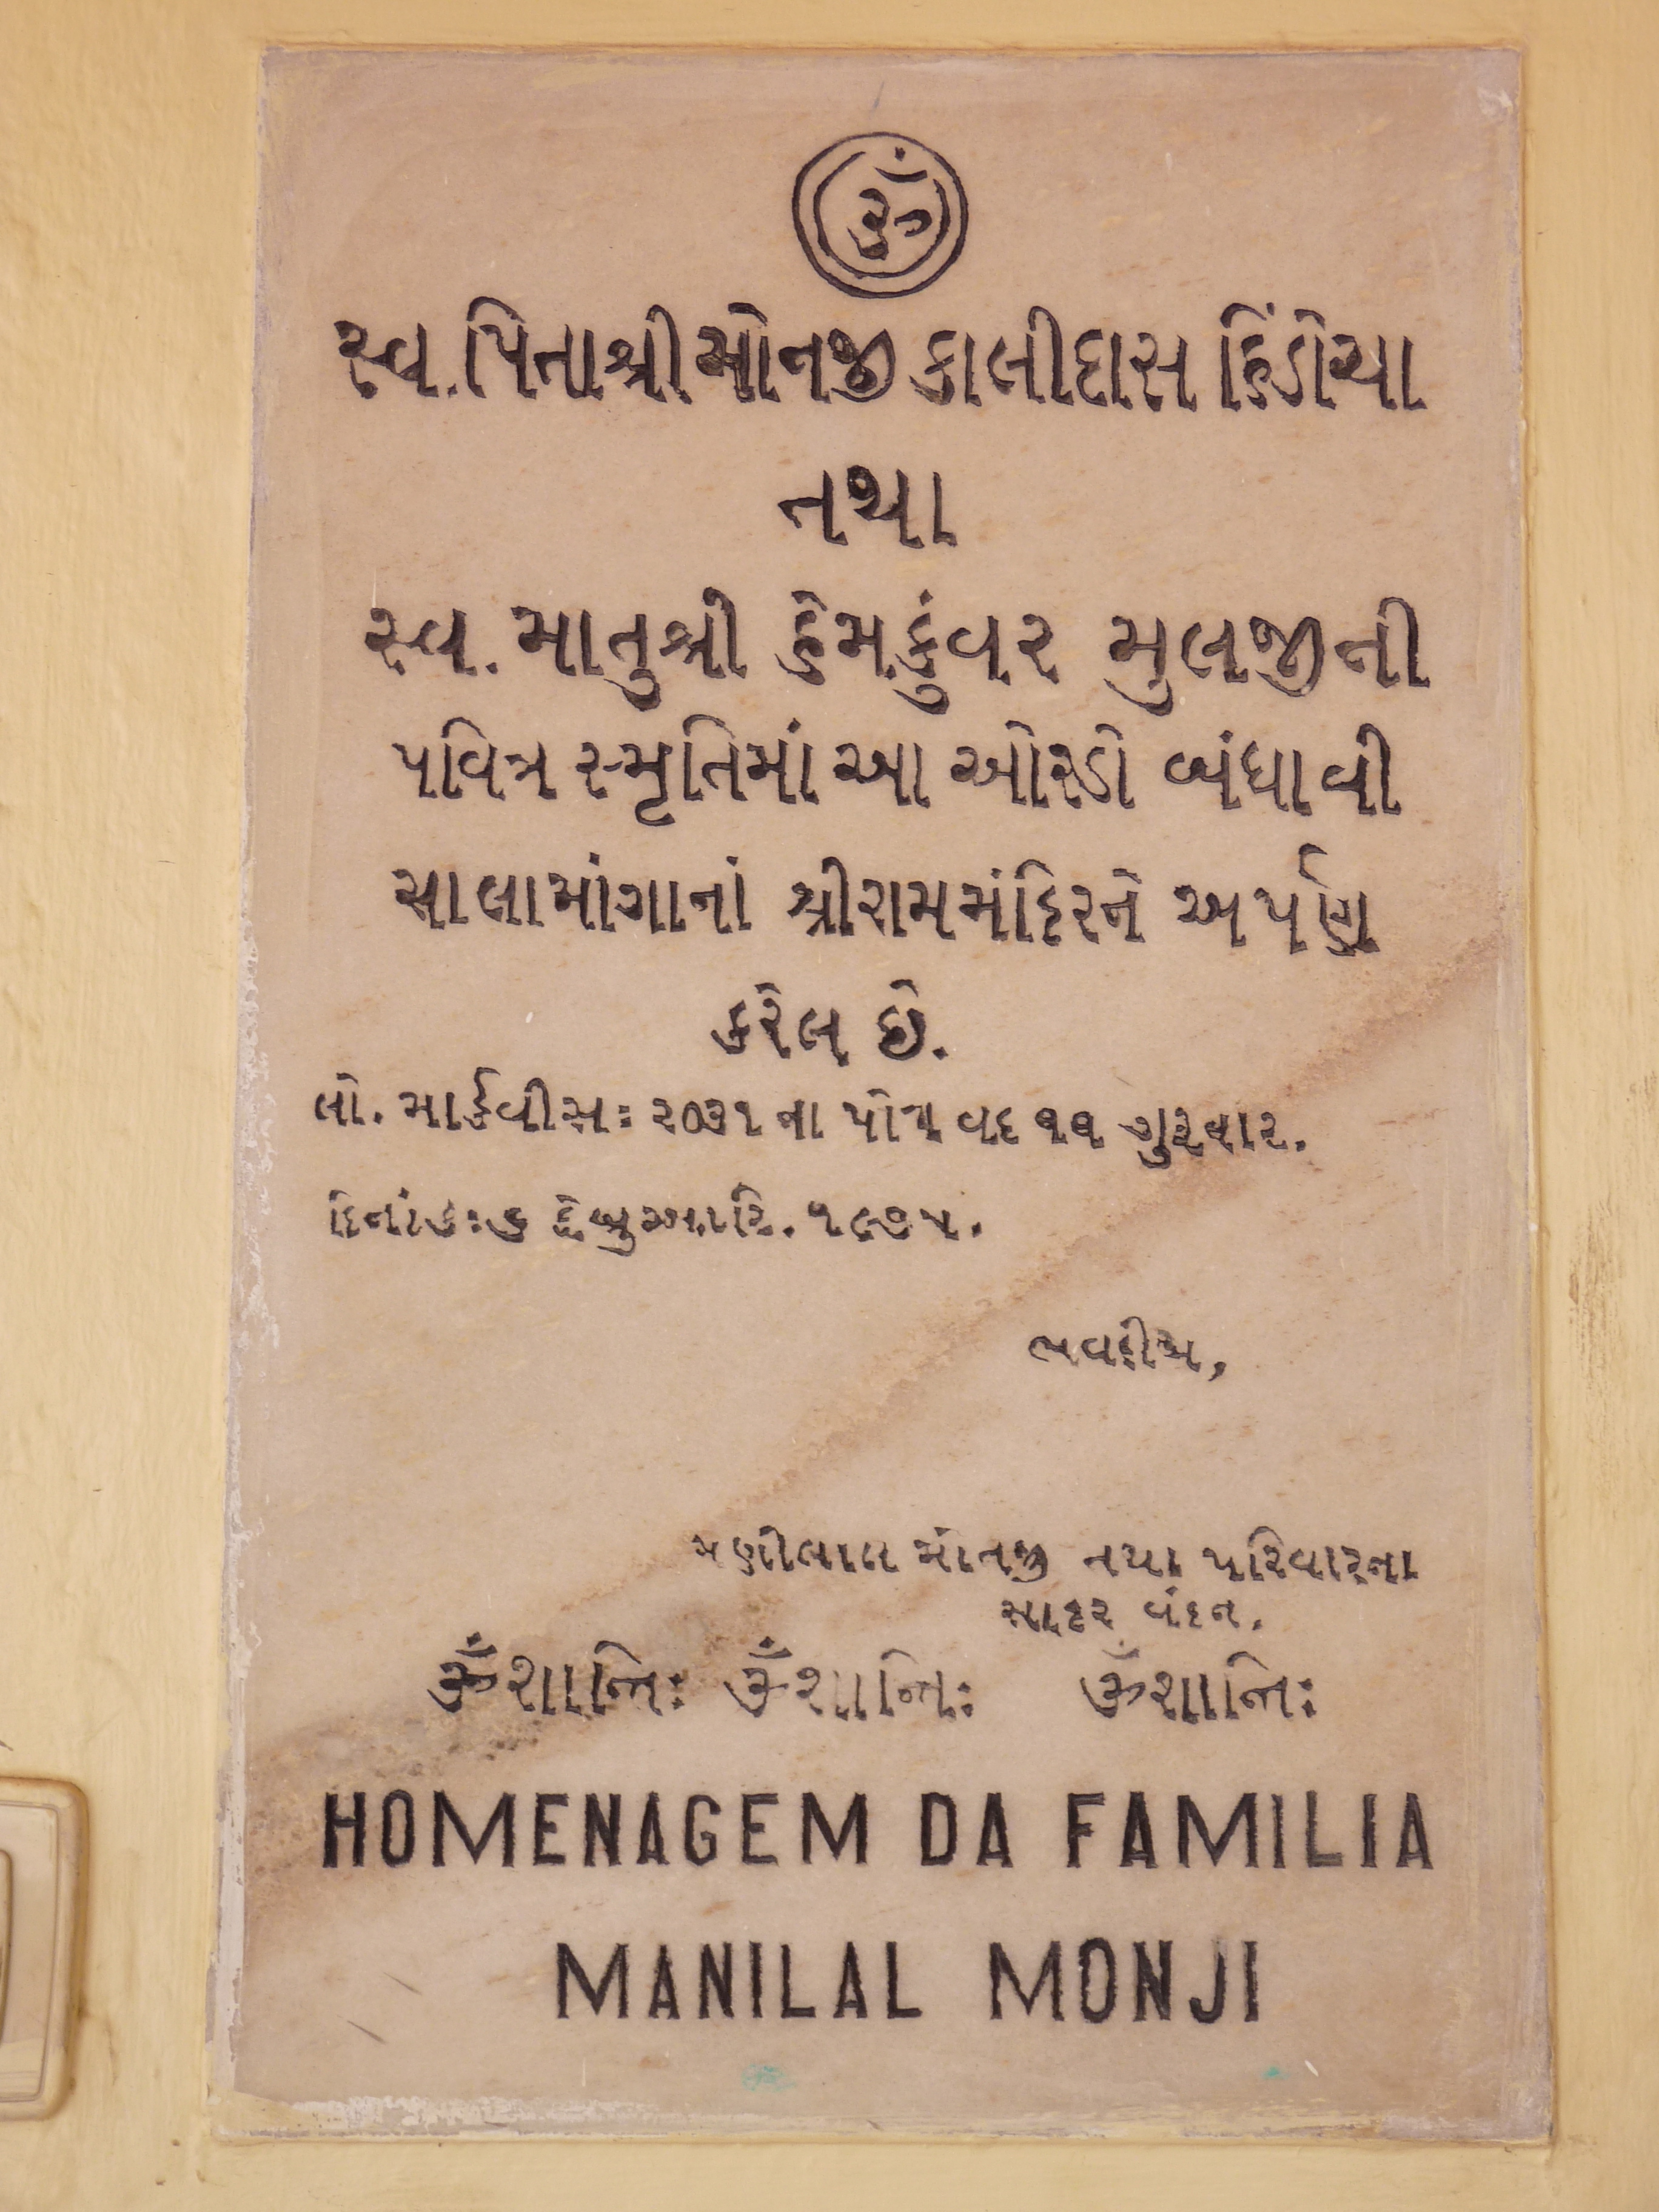 ૐ
સ્વ. પિતાશ્રી મોનજી કાલીદાસ હિંડોચા
તથા
સ્વ. માતુશ્રી હેમકુંવર મુલજીની
પવિત્ર સ્મૃતિમાં આ ઓરડો બંધાવી
સાલામાંગાનાં શ્રીરામમંદિરને અર્પણ
કરેલ છે.
લો. માર્કવીસ: ૨૦૩૧ ના પોષ વદ ૧૧ ગુરુવાર.
દિનાંક: ૬ ફેબ્રુઆરિ. ૧૯૭૫.
ભવદીય,
મણીલાલ મોનજી તથા પરિવારના
સાદર વંદન.
ૐ શાન્તિઃ ૐ શાન્તિઃ ૐ શાન્તિઃ
HOMENAGEM DA FAMILIA
MANILAL MONJI